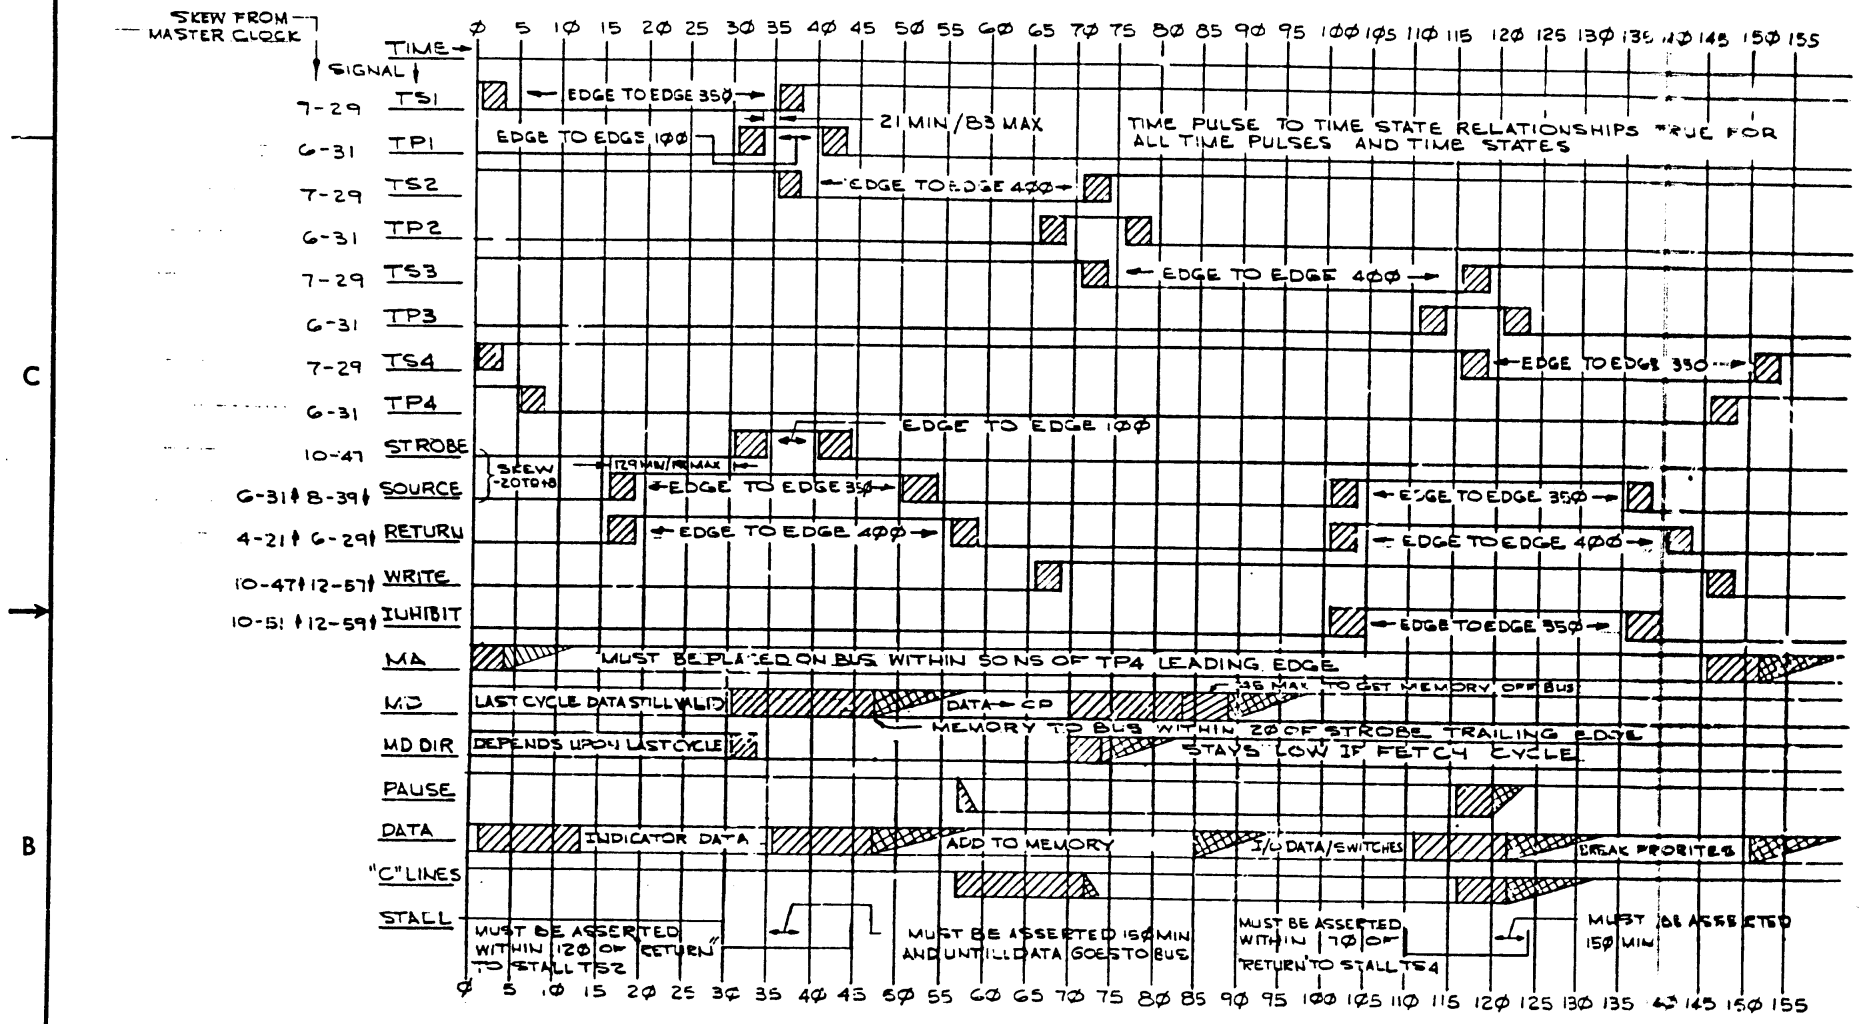 SKEW FROM
MASTER CLOCK
TIME
Ø 5 1Ø 15 2Ø 25 3Ø 35 4Ø 45 5Ø 55 6Ø 65 7Ø 75 8Ø 85 9Ø 95 1ØØ 1Ø5 11Ø 115 12Ø 125 13Ø 135 14Ø 145 15Ø 155
SIGNAL
7-29 TS1 EDGE TO EDGE 35Ø
21 MIN/83 MAX
6-31 TP1 EDGE TO EDGE 1ØØ
TIME PULSE TO TIME STATE RELATIONSHIPS TRUE FOR
ALL TIME PULSES AND TIME STATES
7-29 TS2 EDGE TO EDGE 4ØØ
6-31 TP2
7-29 TS3 EDGE TO EDGE 4ØØ
6-31 TP3
7-29 TS4 EDGE TO EDGE 350
6-31 TP4
EDGE TO EDGE 1ØØ
10-47 STROBE
SKEW
-20TO+8
129 MIN/ MAX
6-31 8-39 SOURCE EDGE TO EDGE 35Ø EDGE TO EDGE 35Ø
4-21 6-29 RETURN EDGE TO EDGE 4ØØ EDGE TO EDGE 4ØØ
10-47 12-57 WRITE
10-51 12-59 INHIBIT EDGE TO EDGE 35Ø
MA MUST BE PLACED ON BUS WITHIN 50NS OF TP4 LEADING EDGE
MAX TO GET MEMORY OFF BUS
MD LAST CYCLE DATA STILL VALID DATA CP
MEMORY TO BUS WITHIN 2Ø OF STROBE TRAILING EDGE
MD DIR DEPENDS UPON LAST CYCLE STAYS LOW IF FETCH CYCLE
PAUSE
DATA INDICATOR DATA ADD TO MEMORY I/O DATA/SWITCHES BREAK PRORITES
"C" LINES
STALL
MUST BE ASSERTED
WITHIN 12Ø OF "RETURN"
TO STALL TS2
MUST BE ASSERTED 15Ø MIN
AND UNTILL DATA GOES TO BUS
MUST BE ASSERTED
WITHIN 7Ø OF
"RETURN" TO STALL TS4
MUST BE ASSERTED
15Ø MIN
Ø 5 1Ø 15 2Ø 25 3Ø 35 4Ø 45 5Ø 55 6Ø 65 7Ø 75 8Ø 85 9Ø 95 1ØØ 1Ø5 11Ø 115 12Ø 125 13Ø 135 145 15Ø 155
C
B